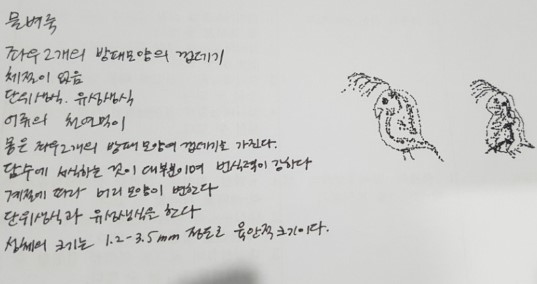 물벼룩
좌우 2개의 방패모양의 껍데기
체절이 없음
단위생식. 유성생식
어류의 천연먹이
몸은 좌우2개의 방패모양에 껍데기를 가진다.
담수에 서식하는 것이 대부분이며 번식력이 강하다
계절에 따라 머리 모양이 변한다
단위생식과 유성생식은 한다
성체의 크기는 1.2-3.5mm 정도로 육안적크기이다.